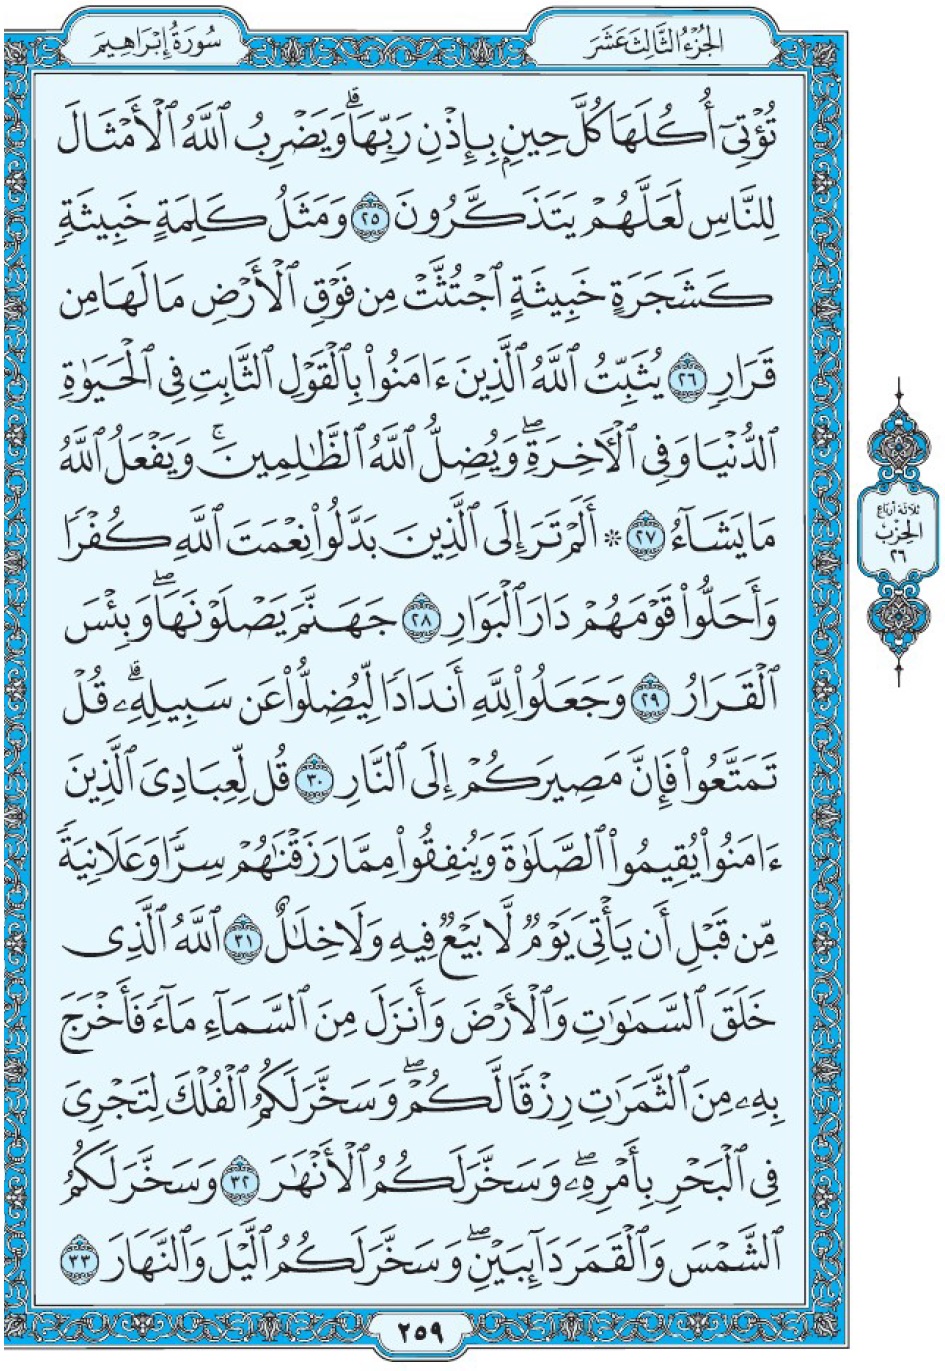 سُورَةُ إِبْرَاهِيمَ
الجُزْءُ الثَّالِثَ عَشَرَ
تُؤْتِيٓ أُكُلَهَا كُلَّ حِينِۭ بِإِذْنِ رَبِّهَاۗ وَيَضْرِبُ ٱللَّهُ ٱلْأَمْثَالَ
لِلنَّاسِ لَعَلَّهُمْ يَتَذَكَّرُونَ ٢٥ وَمَثَلُ كَلِمَةٍ خَبِيثَةٖ
كَشَجَرَةٍ خَبِيثَةٍ ٱجْتُثَّتْ مِن فَوْقِ ٱلْأَرْضِ مَا لَهَا مِن
قَرَارٖ ٢٦ يُثَبِّتُ ٱللَّهُ ٱلَّذِينَ ءَامَنُوا۟ بِٱلْقَوْلِ ٱلثَّابِتِ فِي ٱلْحَيَوٰةِ
ٱلدُّنْيَا وَفِي ٱلْأٓخِرَةِۖ وَيُضِلُّ ٱللَّهُ ٱلظَّٰلِمِينَۚ وَيَفْعَلُ ٱللَّهُ
مَا يَشَآءُ ٢٧ ۞ أَلَمْ تَرَ إِلَى ٱلَّذِينَ بَدَّلُوا۟ نِعْمَتَ ٱللَّهِ كُفْرٗا
وَأَحَلُّوا۟ قَوْمَهُمْ دَارَ ٱلْبَوَارِ ٢٨ جَهَنَّمَ يَصْلَوْنَهَاۖ وَبِئْسَ
ٱلْقَرَارُ ٢٩ وَجَعَلُوا۟ لِلَّهِ أَندَادٗا لِّيُضِلُّوا۟ عَن سَبِيلِهِۦۗ قُلْ
تَمَتَّعُوا۟ فَإِنَّ مَصِيرَكُمْ إِلَى ٱلنَّارِ ٣٠ قُل لِّعِبَادِيَ ٱلَّذِينَ
ءَامَنُوا۟ يُقِيمُوا۟ ٱلصَّلَوٰةَ وَيُنفِقُوا۟ مِمَّا رَزَقْنَٰهُمْ سِرّٗا وَعَلَانِيَةٗ
مِّن قَبْلِ أَن يَأْتِيَ يَوْمٞ لَّا بَيْعٞ فِيهِ وَلَا خِلَٰلٌ ٣١ ٱللَّهُ ٱلَّذِي
خَلَقَ ٱلسَّمَٰوَٰتِ وَٱلْأَرْضَ وَأَنزَلَ مِنَ ٱلسَّمَآءِ مَآءٗ فَأَخْرَجَ
بِهِۦ مِنَ ٱلثَّمَرَٰتِ رِزْقٗا لَّكُمْۖ وَسَخَّرَ لَكُمُ ٱلْفُلْكَ لِتَجْرِيَ
فِي ٱلْبَحْرِ بِأَمْرِهِۦۖ وَسَخَّرَ لَكُمُ ٱلْأَنْهَٰرَ ٣٢ وَسَخَّرَ لَكُمُ
ٱلشَّمْسَ وَٱلْقَمَرَ دَآئِبَيْنِۖ وَسَخَّرَ لَكُمُ ٱلَّيْلَ وَٱلنَّهَارَ ٣٣
ثلاثة أرباع
الحِزْب
٢٦
٢٥٩